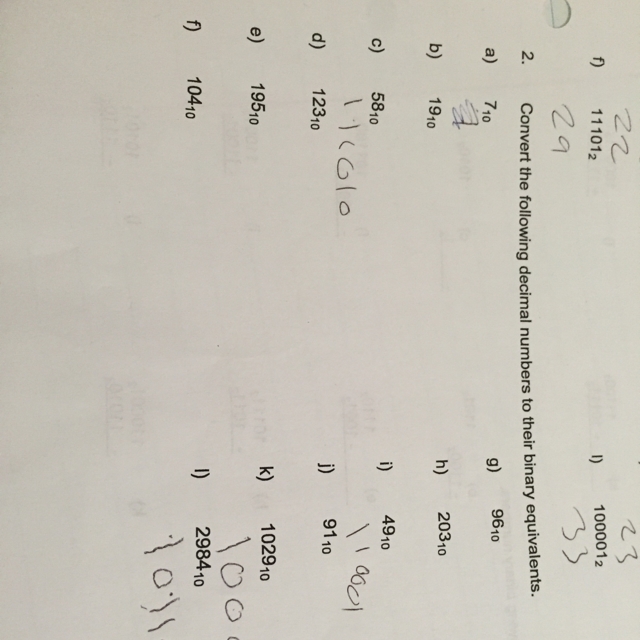 22 23
f) 11101₂ l) 100001₂
29 33
2. Convert the following decimal numbers to their binary equivalents.
a) 7₁₀ g) 96₁₀
b) 19₁₀ h) 203₁₀
c) 58₁₀ i) 49₁₀
111010 110001
d) 123₁₀ j) 91₁₀
e) 195₁₀ k) 1029₁₀
100
f) 104₁₀ l) 2984₁₀
1011